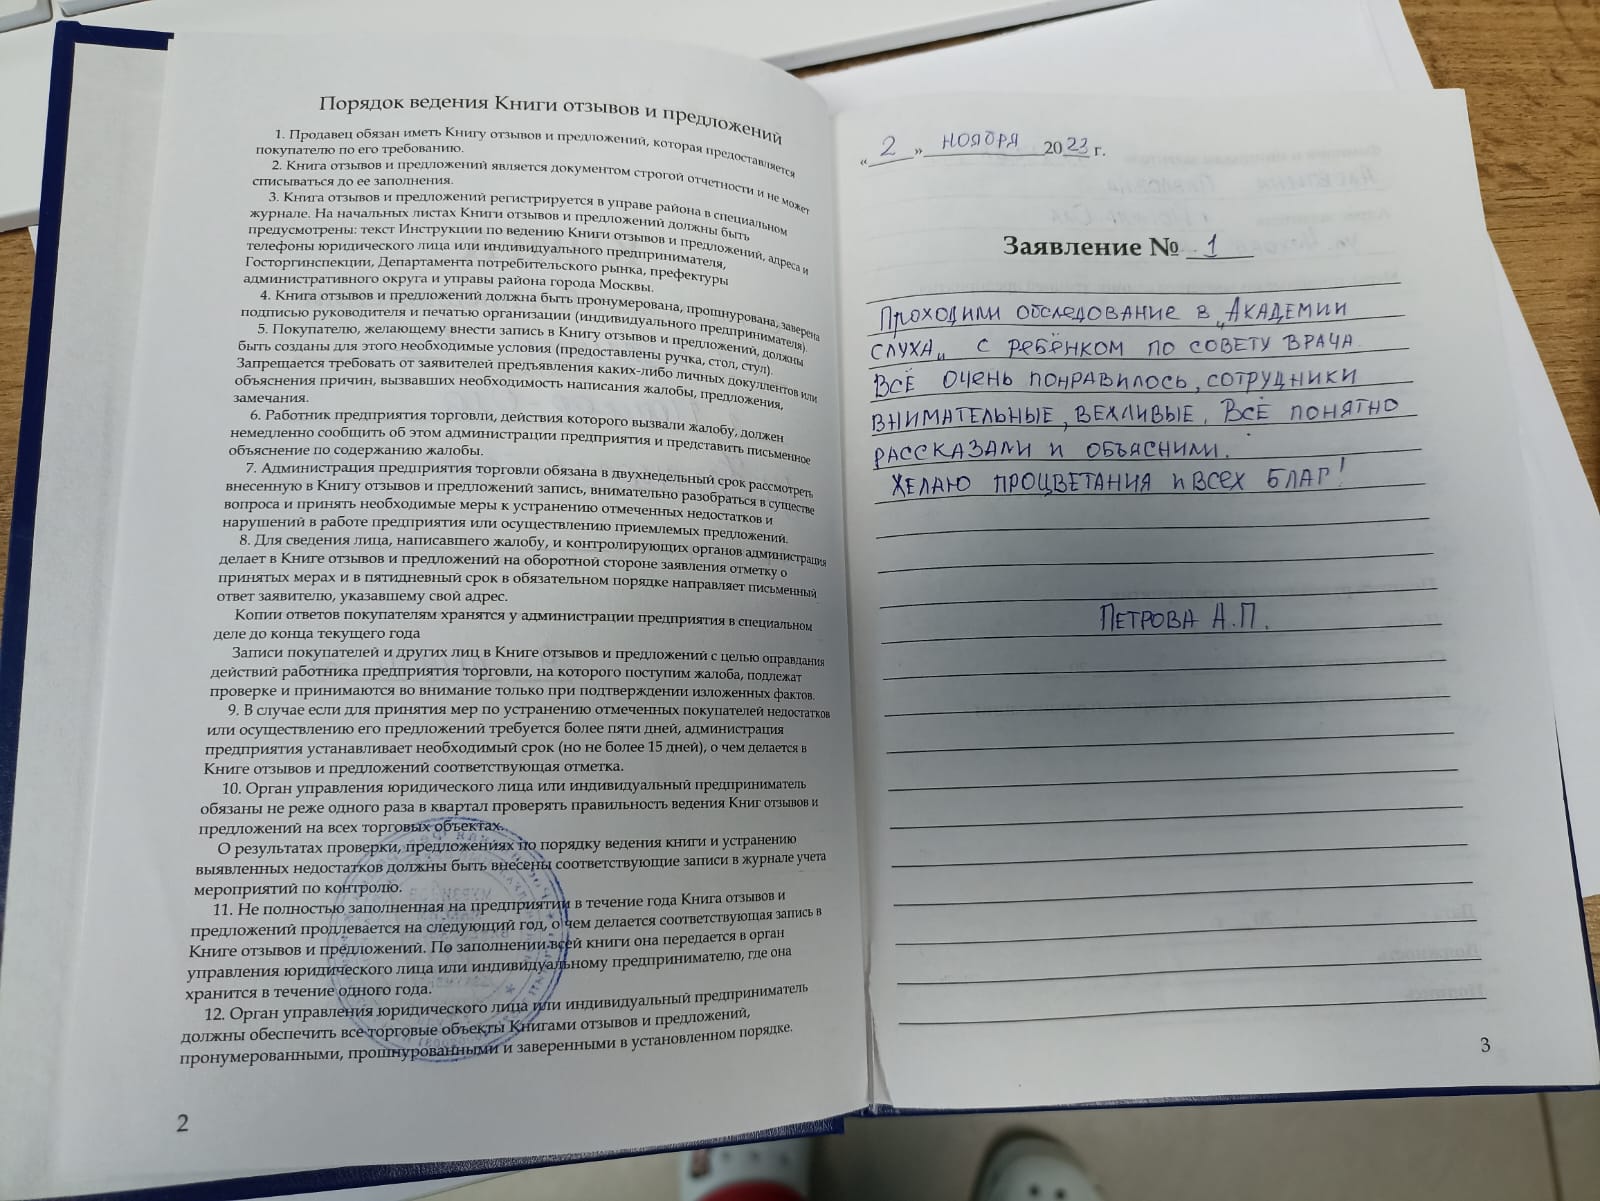 Порядок ведения Книги отзывов и предложений
1. Продавец обязан иметь Книгу отзывов и предложений, которая предоставляется
покупателю по его требованию.
2. Книга отзывов и предложений является документом строгой отчетности и не может
списываться до ее заполнения.
3. Книга отзывов и предложений регистрируется в управе района в специальном
журнале. На начальных листах Книги отзывов и предложений должны быть
предусмотрены: текст Инструкции по ведению Книги отзывов и предложений, адреса и
телефоны юридического лица или индивидуального предпринимателя,
Госторгинспекции, Департамента потребительского рынка, префектуры
административного округа и управы района города Москвы.
4. Книга отзывов и предложений должна быть пронумерована, прошнурована, заверена
подписью руководителя и печатью организации (индивидуального предпринимателя).
5. Покупателю, желающему внести запись в Книгу отзывов и предложений, должны
быть созданы для этого необходимые условия (предоставлены ручка, стол, стул).
Запрещается требовать от заявителей предъявления каких-либо личных докуллентов или
объяснения причин, вызвавших необходимость написания жалобы, предложения,
замечания.
6. Работник предприятия торговли, действия которого вызвали жалобу, должен
немедленно сообщить об этом администрации предприятия и представить письменное
объяснение по содержанию жалобы.
7. Администрация предприятия торговли обязана в двухнедельный срок рассмотреть
внесенную в Книгу отзывов и предложений запись, внимательно разобраться в существе
вопроса и принять необходимые меры к устранению отмеченных недостатков и
нарушений в работе предприятия или осуществлению приемлемых предложений.
8. Для сведения лица, написавшего жалобу, и контролирующих органов администрация
делает в Книге отзывов и предложений на оборотной стороне заявления отметку о
принятых мерах и в пятидневный срок в обязательном порядке направляет письменный
ответ заявителю, указавшему свой адрес.
Копии ответов покупателям хранятся у администрации предприятия в специальном
деле до конца текущего года
Записи покупателей и других лиц в Книге отзывов и предложений с целью оправдания
действий работника предприятия торговли, на которого поступим жалоба, подлежат
проверке и принимаются во внимание только при подтверждении изложенных фактов.
9. В случае если для принятия мер по устранению отмеченных покупателей недостатков
или осуществлению его предложений требуется более пяти дней, администрация
предприятия устанавливает необходимый срок (но не более 15 дней), о чем делается в
Книге отзывов и предложений соответствующая отметка.
10. Орган управления юридического лица или индивидуальный предприниматель
обязаны не реже одного раза в квартал проверять правильность ведения Книг отзывов и
предложений на всех торговых объектах.
О результатах проверки, предложениях по порядку ведения книги и устранению
выявленных недостатков должны быть внесены соответствующие записи в журнале учета
мероприятий по контролю.
11. Не полностью заполненная на предприятии в течение года Книга отзывов и
предложений продлевается на следующий год, о чем делается соответствующая запись в
Книге отзывов и предложений. По заполнении всей книги она передается в орган
управления юридического лица или индивидуальному предпринимателю, где она
хранится в течение одного года.
12. Орган управления юридического лица или индивидуальный предприниматель
должны обеспечить все торговые объекты Книгами отзывов и предложений,
пронумерованными, прошнурованными и заверенными в установленном порядке.
2
«2» НОЯБРЯ 2023 г.
Заявление № 1
ПРОХОДИЛИ ОБСЛЕДОВАНИЕ В „АКАДЕМИИ
СЛУХА„ С РЕБЁНКОМ ПО СОВЕТУ ВРАЧА.
ВСЁ ОЧЕНЬ ПОНРАВИЛОСЬ, СОТРУДНИКИ
ВНИМАТЕЛЬНЫЕ, ВЕЖЛИВЫЕ. ВСЁ ПОНЯТНО
РАССКАЗАЛИ И ОБЪЯСНИЛИ.
ЖЕЛАЮ ПРОЦВЕТАНИЯ И ВСЕХ БЛАГ!
ПЕТРОВА А.П.
3